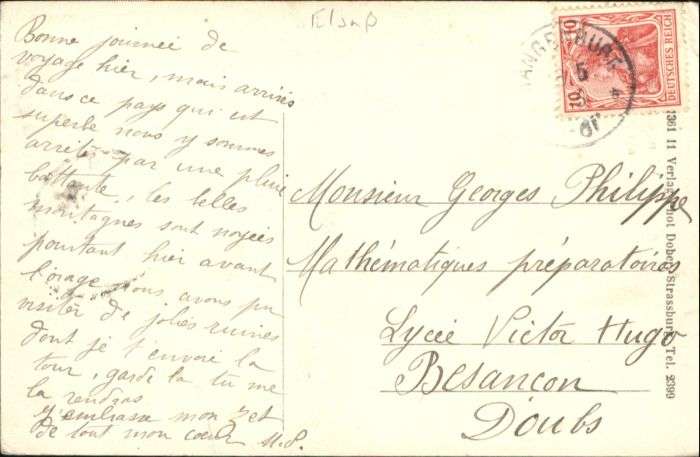 Elsaß
Bonne journée de
voyage hier, mais arrivés
dans ce pays qui est
superbe nous y sommes
arrêté par une pluie
battante, les belles
montagnes sont noyées
pourtant hier avant
l'orage nous avons pu
visiter de jolies ruines
dont je t'envoie la
tour, garde la tu me
la rendras
J'embrasse mon
de tout mon cœur M.P.
DEUTSCHES REICH
10
10
5
Monsieur Georges Philippe
Mathématiques préparatoires
Lycée Victor Hugo
Besançon
Doubs
1361 11 Verlag Phot Dober, Strassburg, Tel. 2399